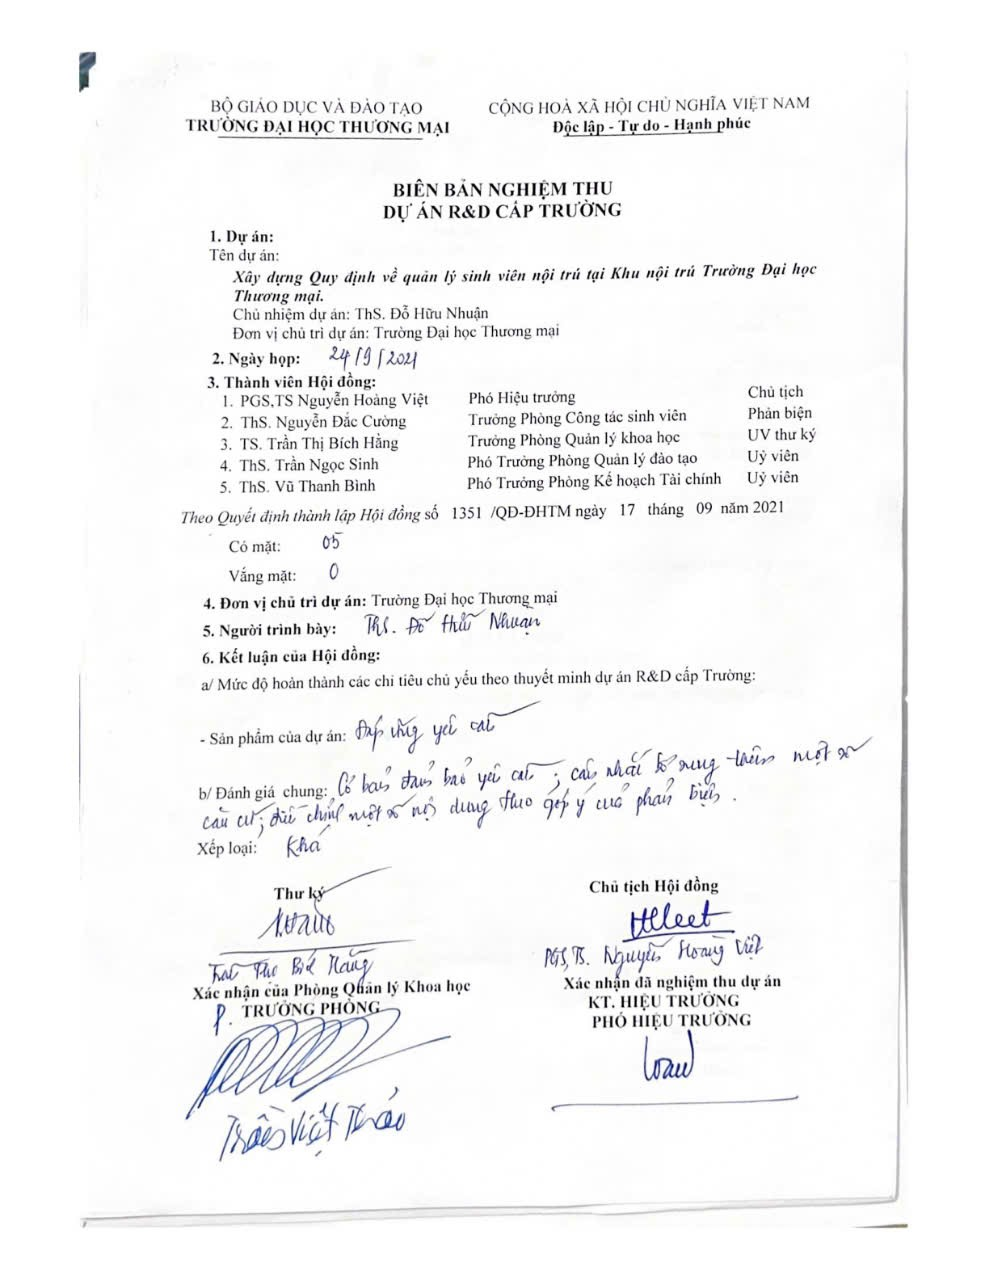 BỘ GIÁO DỤC VÀ ĐÀO TẠO
TRƯỜNG ĐẠI HỌC THƯƠNG MẠI
CỘNG HOÀ XÃ HỘI CHỦ NGHĨA VIỆT NAM
Độc lập - Tự do - Hạnh phúc
BIÊN BẢN NGHIỆM THU
DỰ ÁN R&D CẤP TRƯỜNG
1. Dự án:
Tên dự án:
Xây dựng Quy định về quản lý sinh viên nội trú tại Khu nội trú Trường Đại học
Thương mại.
Chủ nhiệm dự án: ThS. Đỗ Hữu Nhuận
Đơn vị chủ trì dự án: Trường Đại học Thương mại
2. Ngày họp: 24/9/2021
3. Thành viên Hội đồng:
1. PGS,TS Nguyễn Hoàng Việt Phó Hiệu trưởng Chủ tịch
2. ThS. Nguyễn Đắc Cường Trưởng Phòng Công tác sinh viên Phản biện
3. TS. Trần Thị Bích Hằng Trưởng Phòng Quản lý khoa học UV thư ký
4. ThS. Trần Ngọc Sinh Phó Trưởng Phòng Quản lý đào tạo Uỷ viên
5. ThS. Vũ Thanh Bình Phó Trưởng Phòng Kế hoạch Tài chính Uỷ viên
Theo Quyết định thành lập Hội đồng số 1351 /QĐ-ĐHTM ngày 17 tháng 09 năm 2021
Có mặt: 05
Vắng mặt: 0
4. Đơn vị chủ trì dự án: Trường Đại học Thương mại
5. Người trình bày: ThS. Đỗ Hữu Nhuận
6. Kết luận của Hội đồng:
a/ Mức độ hoàn thành các chỉ tiêu chủ yếu theo thuyết minh dự án R&D cấp Trường:
- Sản phẩm của dự án: Đáp ứng yêu cầu
b/ Đánh giá chung: Cơ bản đảm bảo yêu cầu; cần bổ sung thêm một số
căn cứ; điều chỉnh một số nội dung theo góp ý của phản biện.
Xếp loại: Khá
Thư ký
Chủ tịch Hội đồng
Trần Thị Bích Hằng
PGS,TS. Nguyễn Hoàng Việt
Xác nhận của Phòng Quản lý Khoa học
P. TRƯỞNG PHÒNG
Xác nhận đã nghiệm thu dự án
KT. HIỆU TRƯỞNG
PHÓ HIỆU TRƯỞNG
Trần Việt Thảo